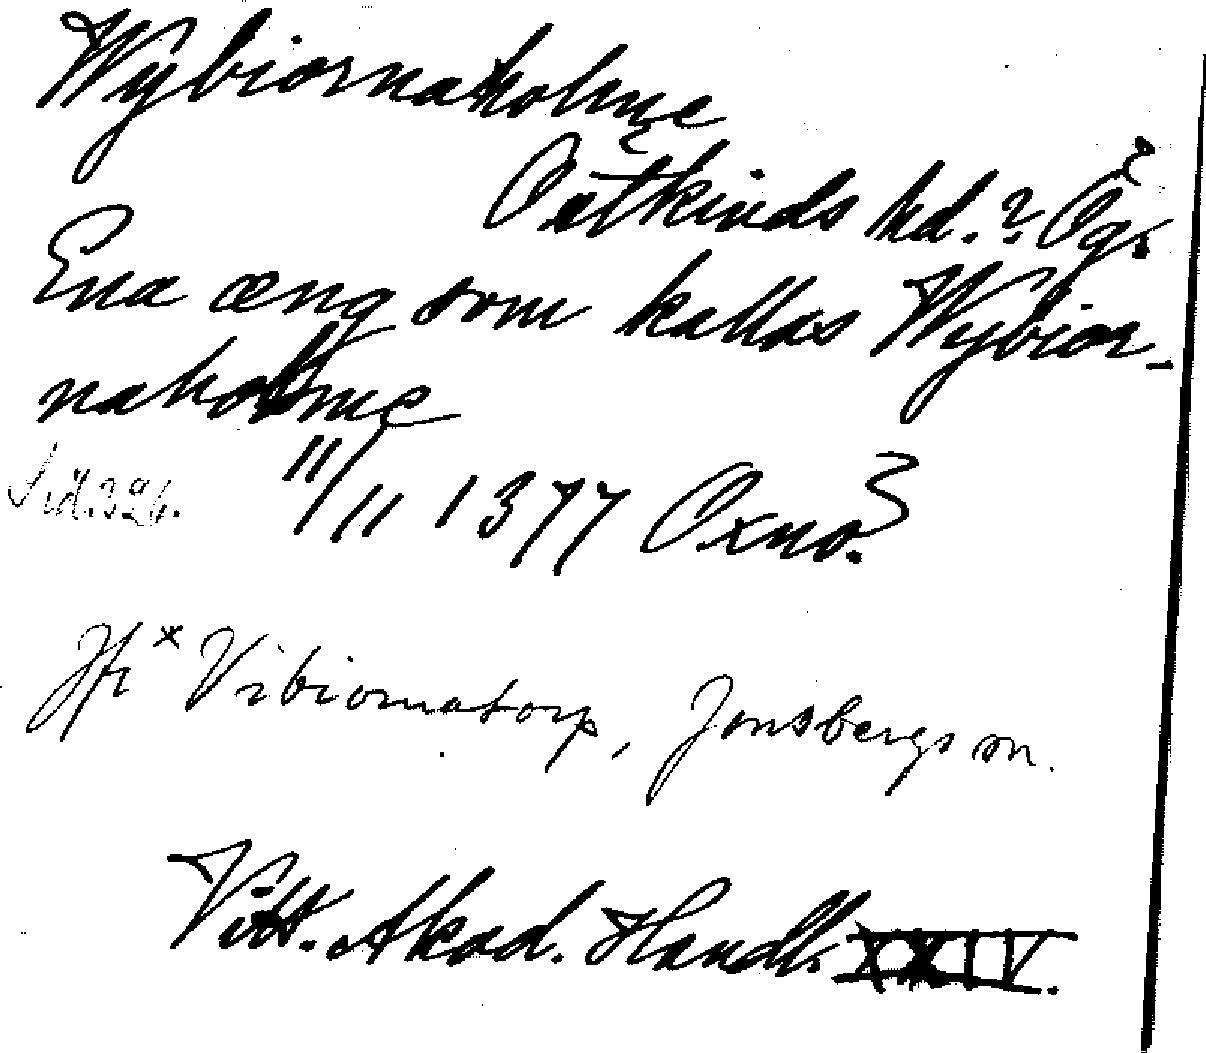 Wybiornaholmę
Östkinds hd.? Ög.
Ena æng som kallas Wybior-
naholmę
Sid. 326. 11/11 1377 Oxnö?
Jfr * Vibiornatorp, Jonsbergs sn.
Vitt. Akad. Handl. XXIV.